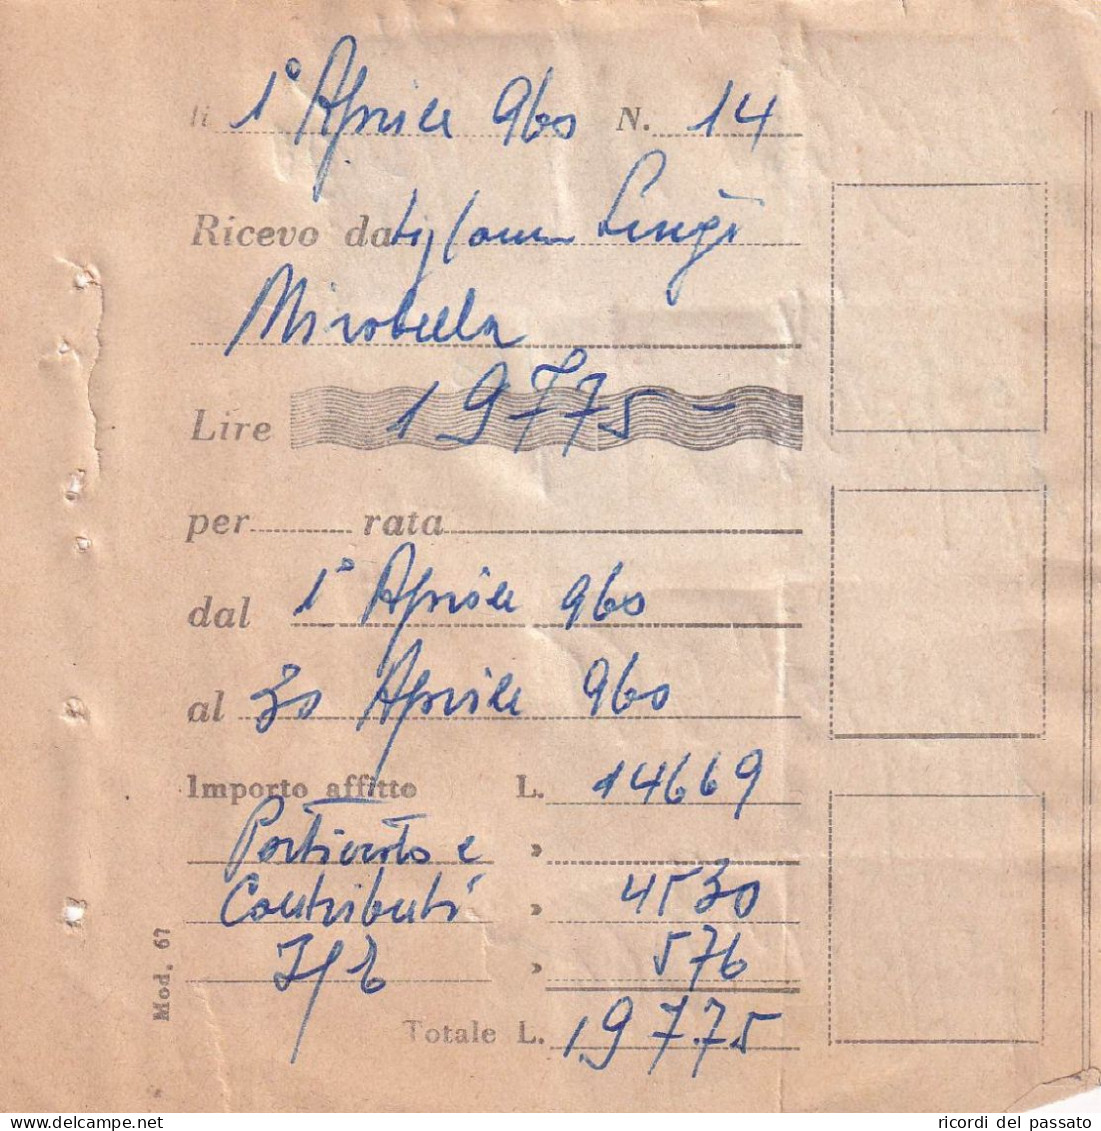 li 1° Aprile 960 N. 14
Ricevo da Luigi
Mirabella
Lire 19775 -
per rata
dal 1° Aprile 960
al 30 Aprile 960
Importo affitto L. 14669
Portierato e »
Contributi » 4530
» 576
Totale L. 19775
Mod. 67
ricordi del passato